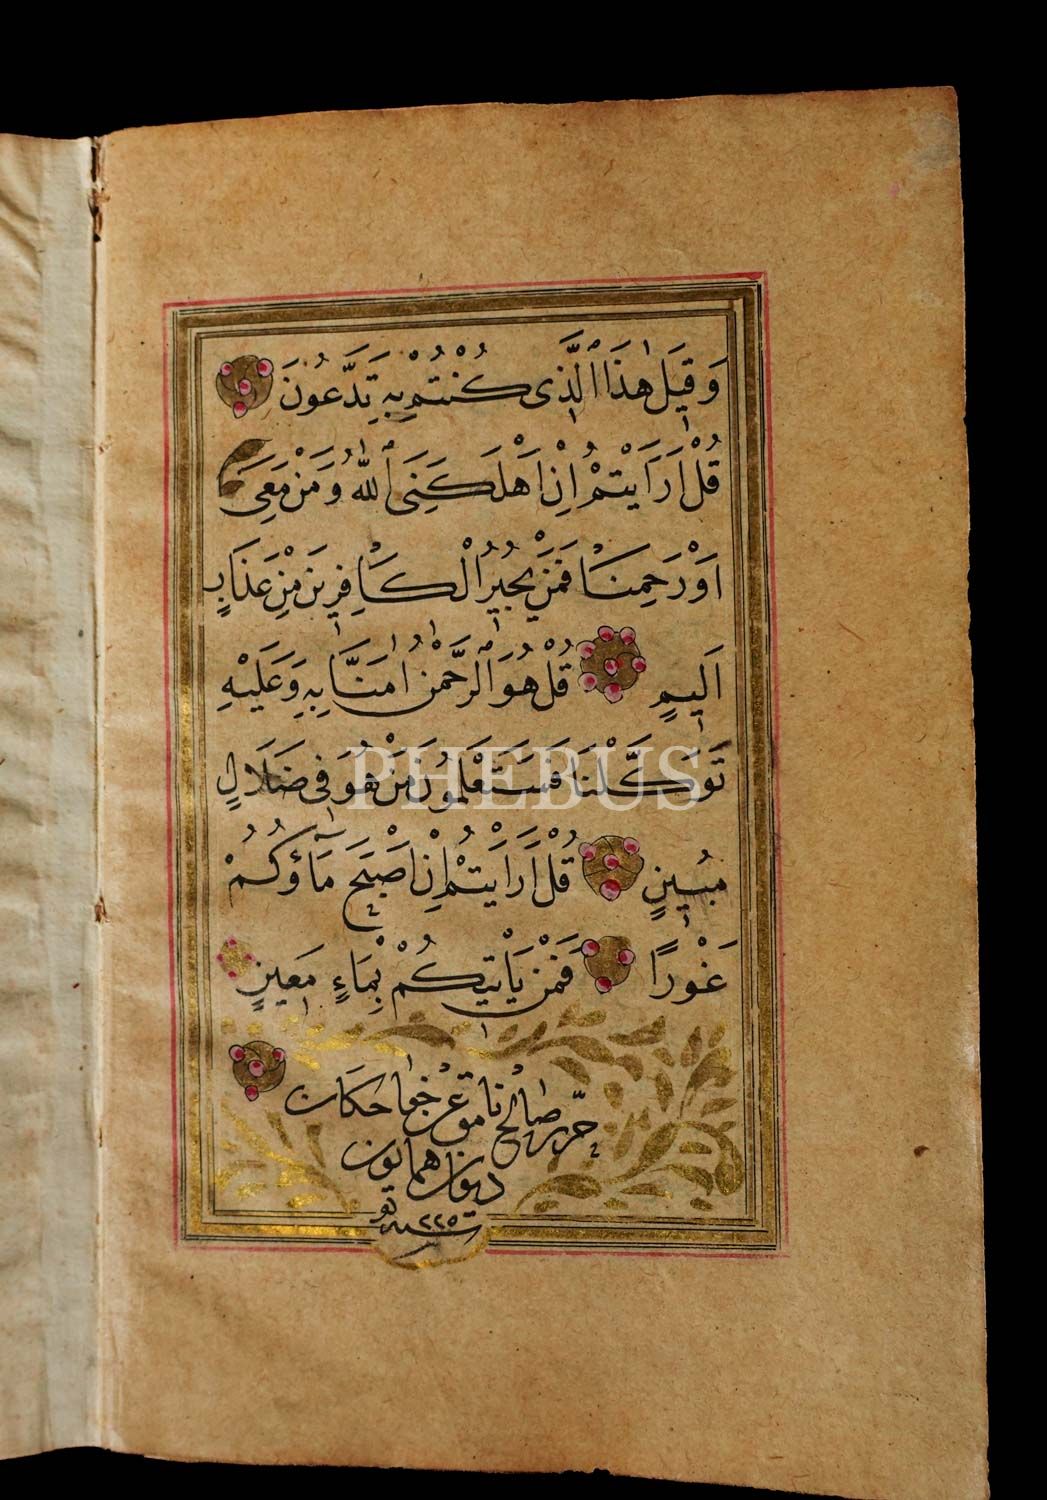 وَقِيلَ هٰذَا الَّذِى كُنْتُمْ بِهِ تَدَّعُونَ
قُلْ اَرَاَيْتُمْ اِنْ اَهْلَكَنِىَ اللّٰهُ وَمَنْ مَعِىَ
اَوْ رَحِمَنَا فَمَنْ يُجِيرُ الْكَافِرِينَ مِنْ عَذَابٍ
اَلِيمٍ قُلْ هُوَ الرَّحْمٰنُ اٰمَنَّا بِهِ وَعَلَيْهِ
تَوَكَّلْنَا فَسَتَعْلَمُونَ مَنْ هُوَ فِى ضَلَالٍ
مُبِينٍ قُلْ اَرَاَيْتُمْ اِنْ اَصْبَحَ مَآؤُكُمْ
غَوْرًا فَمَنْ يَاْتِيكُمْ بِمَاءٍ مَعِينٍ
حرّره صالح
ديوان همايون
سنه
PHEBUS